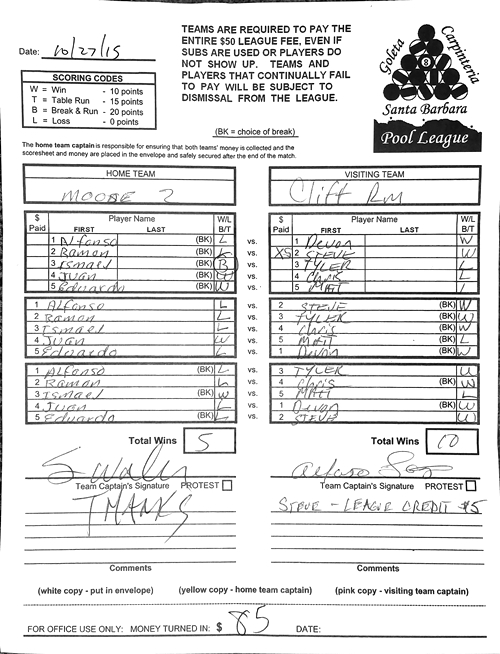 Date: 10/27/15
TEAMS ARE REQUIRED TO PAY THE
ENTIRE $50 LEAGUE FEE, EVEN IF
SUBS ARE USED OR PLAYERS DO
NOT SHOW UP. TEAMS AND
PLAYERS THAT CONTINUALLY FAIL
TO PAY WILL BE SUBJECT TO
DISMISSAL FROM THE LEAGUE.
(BK = choice of break)
Goleta Carpinteria
8
Santa Barbara
Pool League
SCORING CODES
W = Win - 10 points
T = Table Run - 15 points
B = Break & Run - 20 points
L = Loss - 0 points
The home team captain is responsible for ensuring that both teams' money is collected and the
scoresheet and money are placed in the envelope and safely secured after the end of the match.
HOME TEAM VISITING TEAM
MOOSE 2 Cliff Rm
$ Paid Player Name FIRST LAST W/L B/T $ Paid Player Name FIRST LAST W/L B/T
1 Alfonso (BK) L vs. 1 Devon W
2 Ramon (BK) L vs. 2 STEVE W
3 Ismael (BK) B vs. 3 TYLER L
4 Juan (BK) vs. 4 Chris L
5 Eduardo (BK) W vs. 5 MATT
1 Alfonso L vs. 2 STEVE (BK) W
2 Ramon L vs. 3 TYLER (BK) W
3 Ismael L vs. 4 Chris (BK) W
4 Juan W vs. 5 MATT (BK) L
5 Eduardo L vs. 1 Devon (BK) W
1 Alfonso (BK) L vs. 3 TYLER
2 Ramon (BK) L vs. 4 Chris W
3 Ismael (BK) W vs. 5 MATT L
4 Juan (BK) L vs. 1 Devon
5 Eduardo (BK) L vs. 2 STEVE
Total Wins 5 Total Wins 10
Team Captain's Signature PROTEST Team Captain's Signature PROTEST
THANKS STEVE - LEAGUE CREDIT $5
Comments Comments
(white copy - put in envelope) (yellow copy - home team captain) (pink copy - visiting team captain)
FOR OFFICE USE ONLY: MONEY TURNED IN: $ 85 DATE: